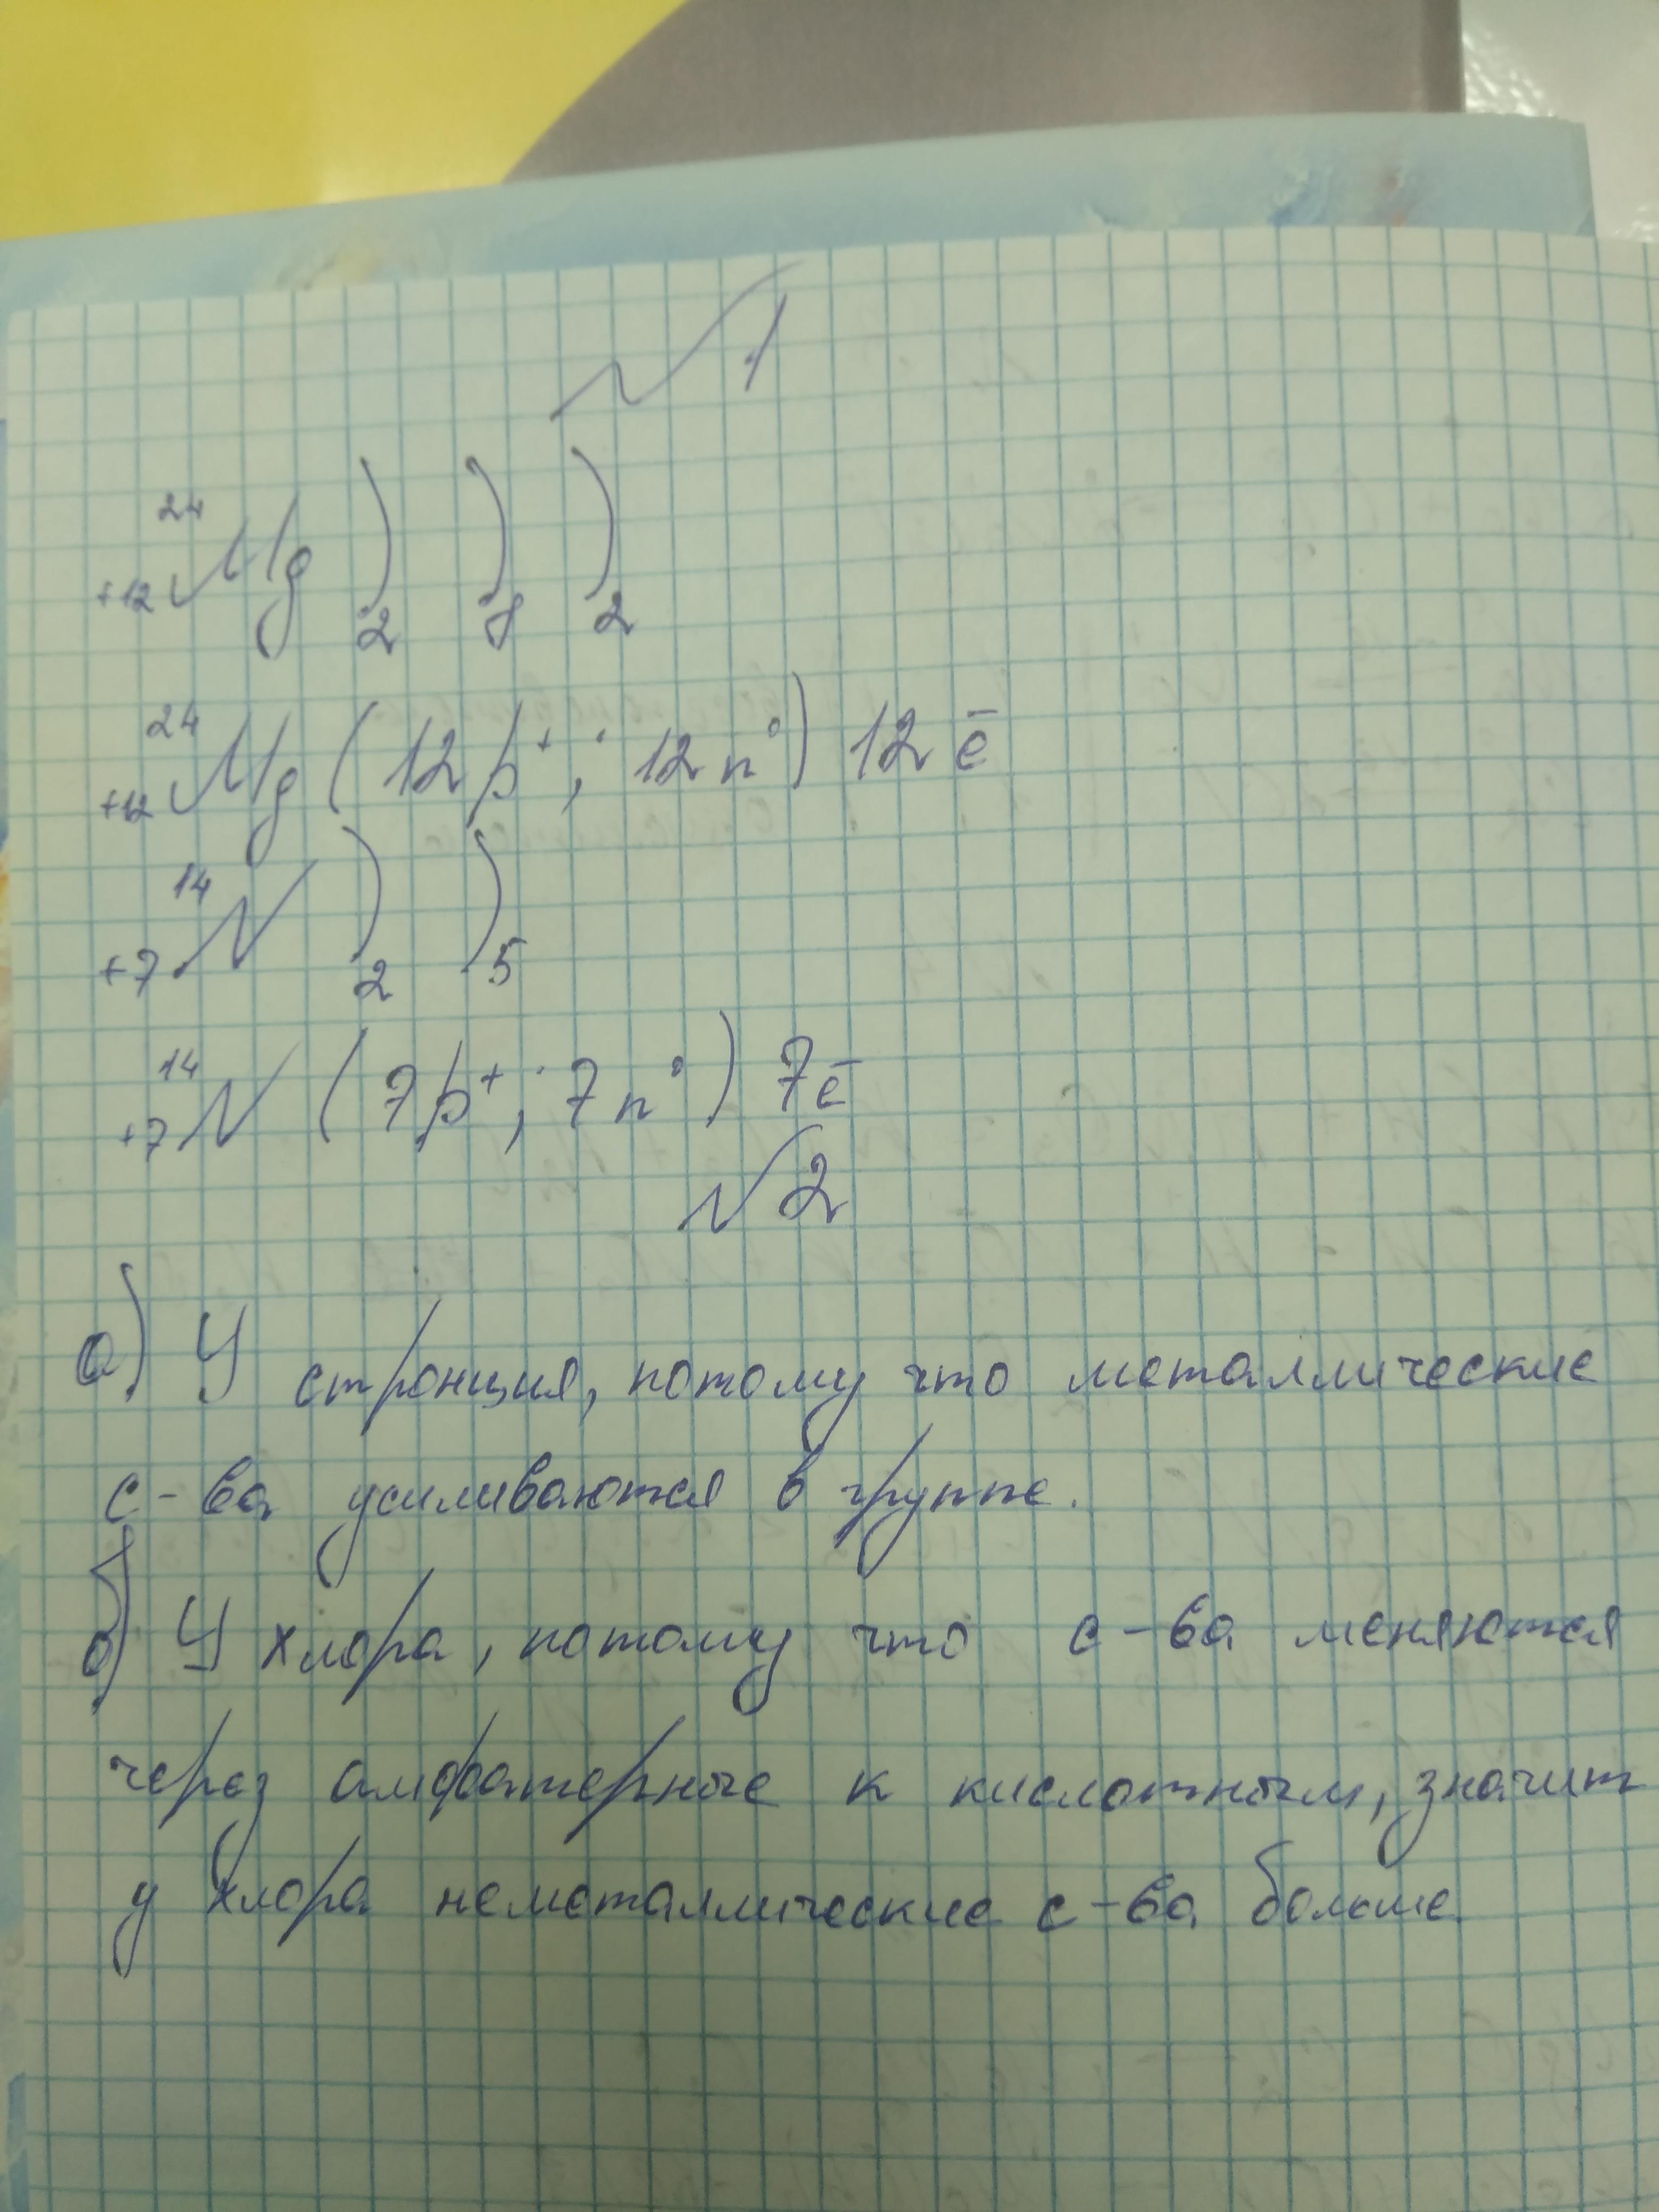 №1
+12 24 Mg ) ) )
2 8 2
+12 24 Mg (12p⁺; 12n⁰) 12ē
+7 14 N ) )
2 5
+7 14 N (7p⁺; 7n⁰) 7ē
№2
а) У стронция, потому что металлические
с-ва усиливаются в группе.
б) У хлора, потому что с-ва меняются
через амфотерные к кислотным, значит
у хлора неметаллические с-ва больше.